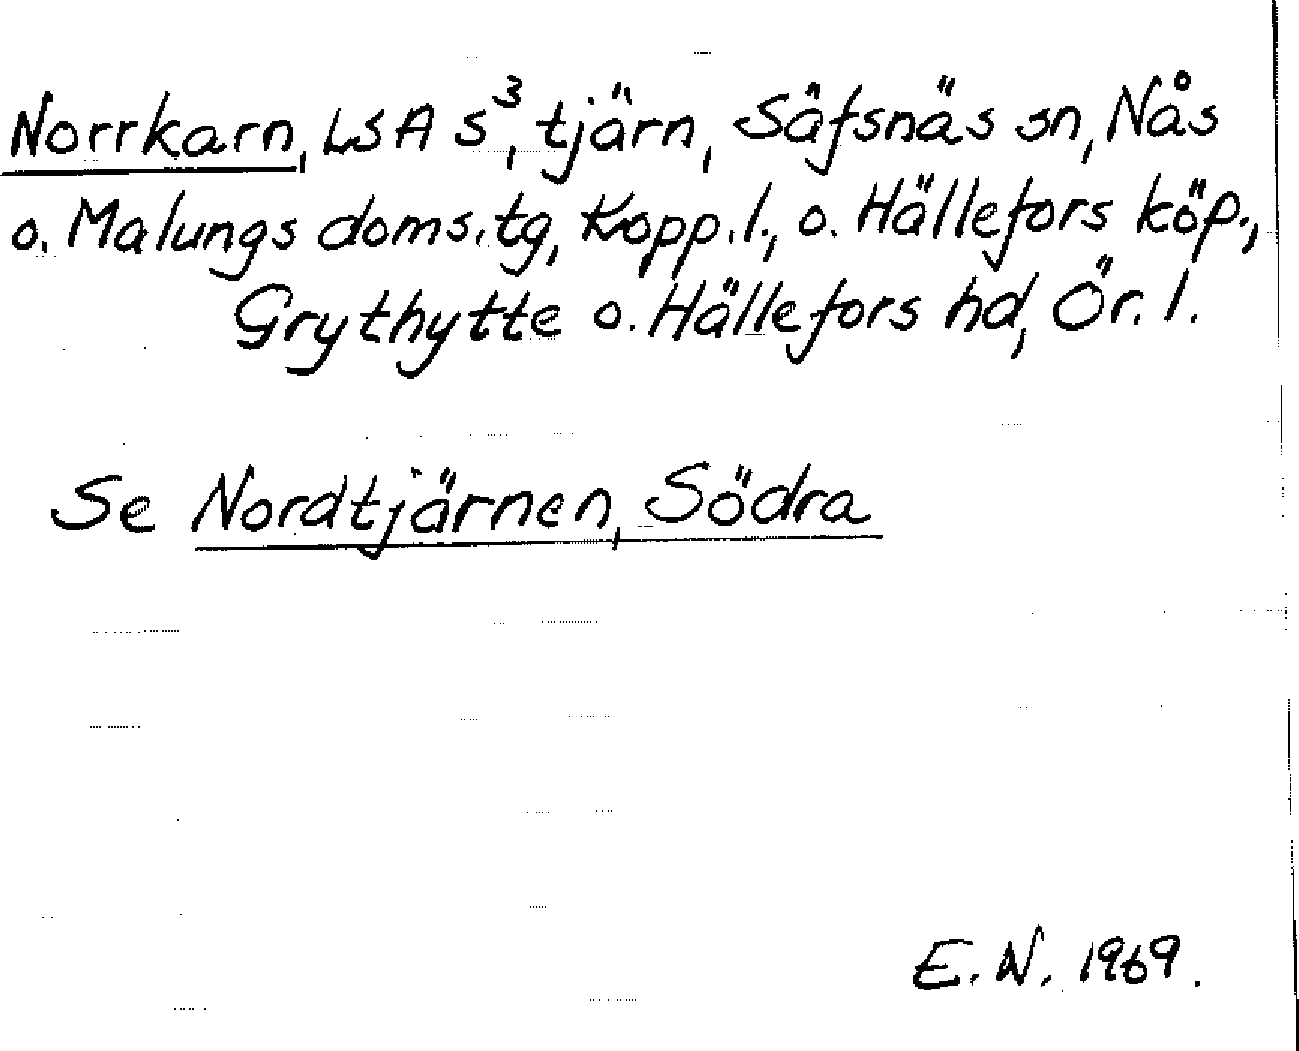 Norrkarn, LSA S³, tjärn, Säfsnäs sn, Nås
o. Malungs doms.tg, Kopp.l., o. Hällefors köp.,
Grythytte o. Hällefors hd, Ör. l.
Se Nordtjärnen, Södra
E. N. 1969.